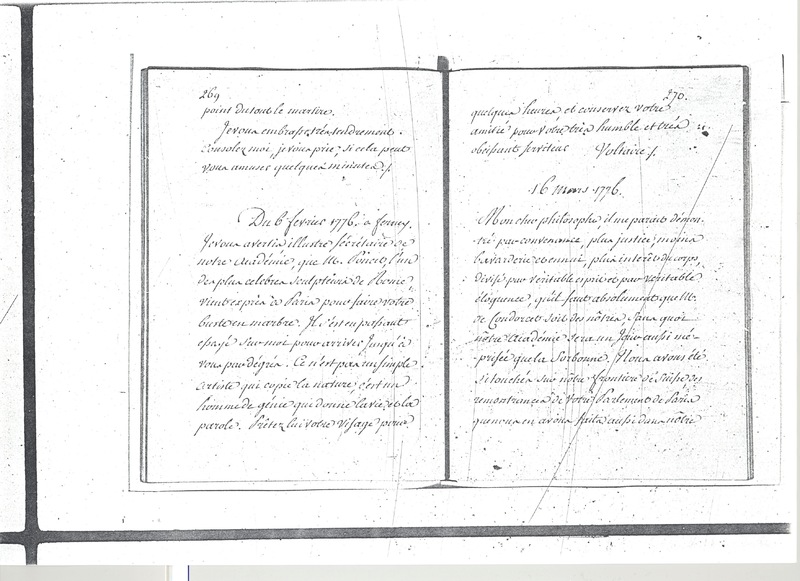 269
point du tout le martire.
Je vous embrasse très tendrement.
Consolez moi, je vous prie, si cela peut
vous amuser quelques minutes ./.
Du 6 fevrier 1776. à ferney.
Je vous avertis, illustre sécrétaire de
notre académie, que M. Poncet, l'un
des plus celebres sculpteurs de Rome,
vient exprès à Paris pour faire votre
buste en marbre. Il s'est en passant
essayé sur moi pour arriver jusqu'à
vous par dégrés. Ce n'est pas un simple
artiste qui copie la nature, c'est un
homme de génie qui donne la vie et la
parole. Prêtez lui votre visage pour
270.
quelques heures et conservez votre
amitié pour votre très humble et très
obeissant serviteur Voltaire ./.
16 mars 1776.
Mon cher philosophe, il me parait démon-
tré par convenance, plus justice, moins
bavarderie et ennui, plus interêts du corps,
divisé par véritable esprit et par véritable
éloquence, qu'il faut absolument que M.
de Condorcet soit des nôtres, sans quoi
nôtre académie sera un jour aussi mé-
prisée que la Sorbonne. Nous avons été
si touchés sur nôtre frontière de Suisse, des
remontrances de votre Parlement de Paris
que nous en avons faits aussi dans nôtre